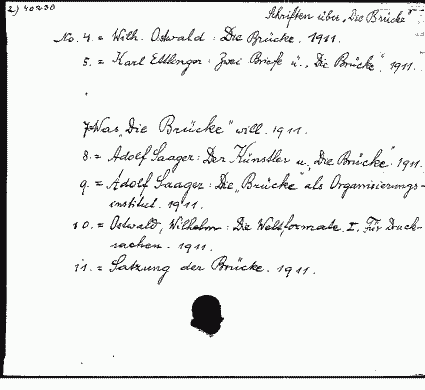 2) 40230
Schriften über „Die Brücke"
No. 4. = Wilh. Ostwald: Die Brücke. 1911.
5. = Karl Ettlinger: Zwei Briefe u. „Die Brücke". 1911.
7=Was „Die Brücke" will. 1911.
8. = Adolf Saager: Der Künstler u. „Die Brücke". 1911.
9. = Adolf Saager: Die „Brücke" als Organisierungs-
institut. 1911.
10. = Ostwald, Wilhelm: Die Weltformate I. Für Druck-
sachen. 1911.
11. = Satzung der Brücke. 1911.